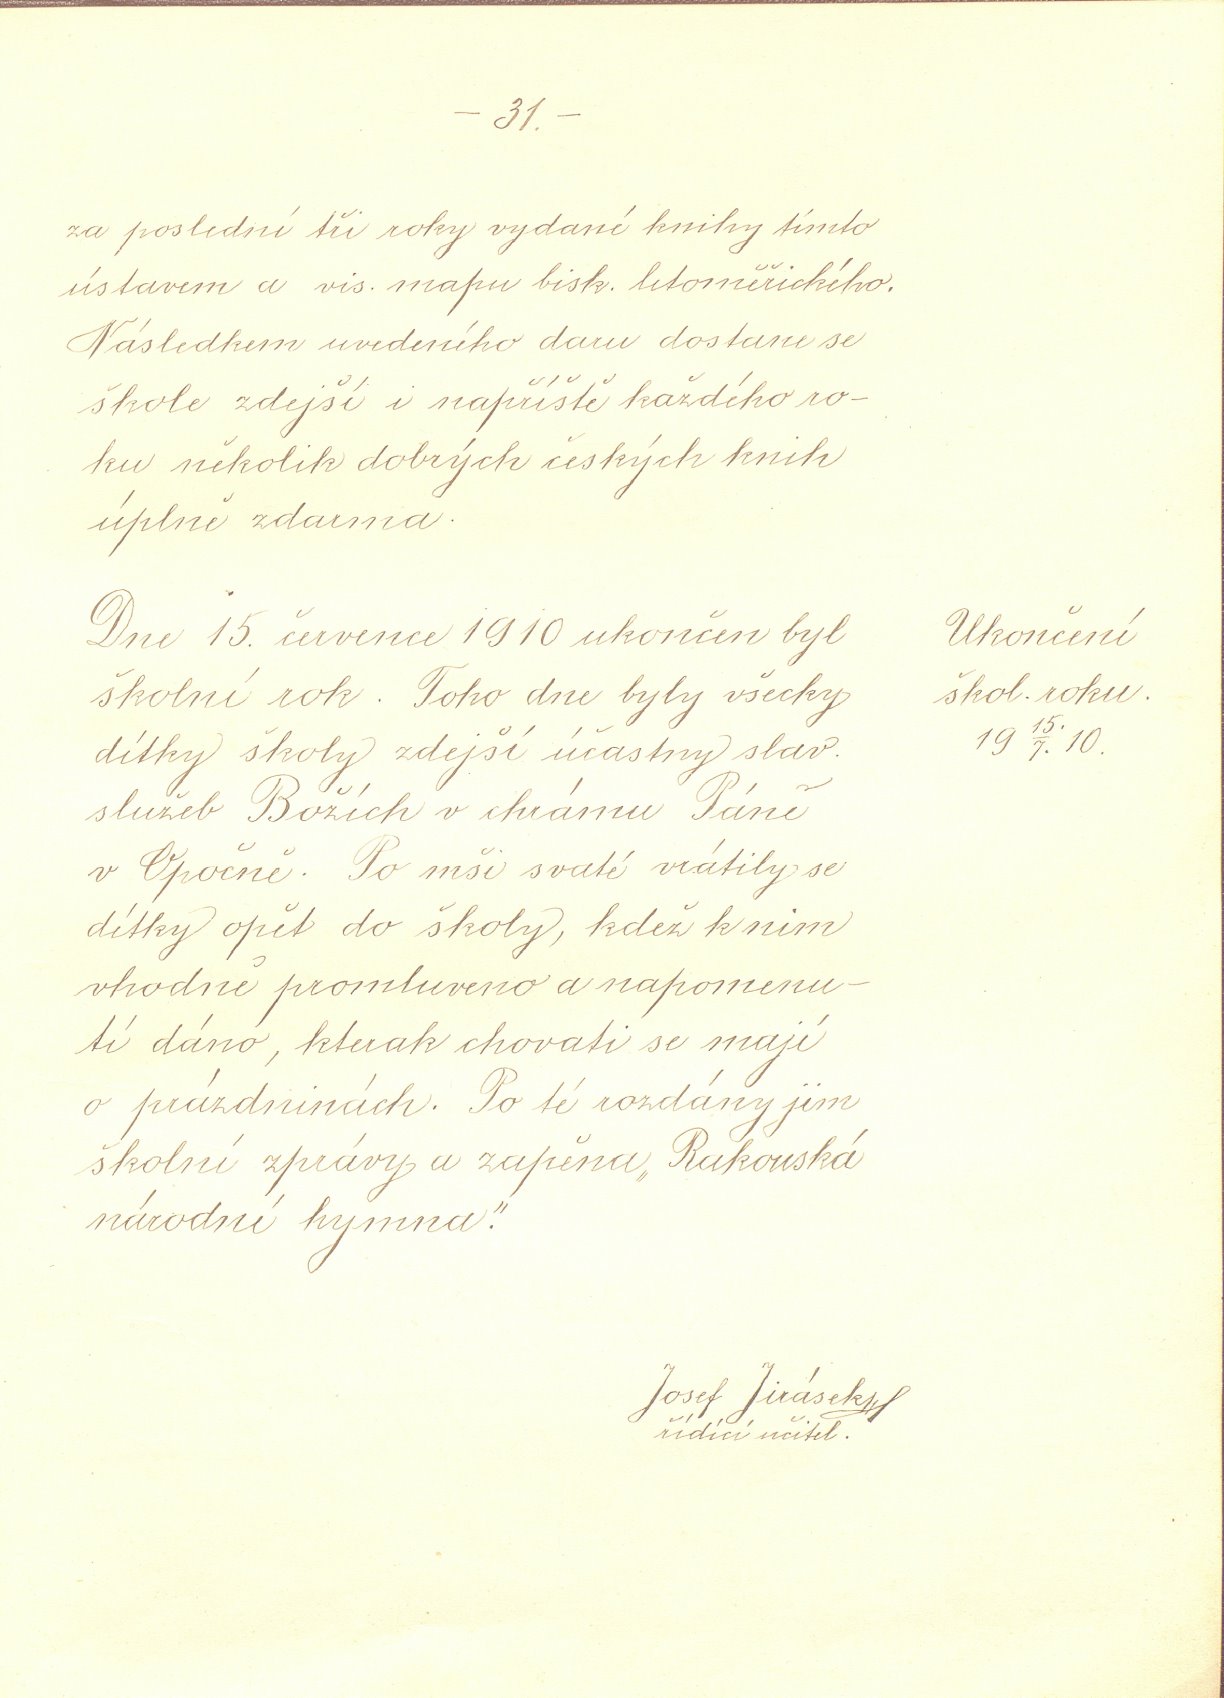 — 31. —
za poslední tři roky vydané knihy tímto
ústavem a vis. mapu bisk. litoměřického.
Následkem uvedeného daru dostane se
škole zdejší i napříště každého ro-
ku několik dobrých českých knih
úplně zdarma.
Dne 15. července 1910 ukončen byl
školní rok. Toho dne byly všecky
dítky školy zdejší účastny slav.
služeb Božích v chrámu Páně
v Opočně. Po mši svaté vrátily se
dítky opět do školy, kdež k nim
vhodně promluveno a napomenu-
tí dáno, kterak chovati se mají
o prázdninách. Po té rozdány jim
školní zprávy a zapěna „Rakouská
národní hymna".
Ukončení
škol. roku.
19 15./7. 10.
Josef Jirásek
řídící učitel.